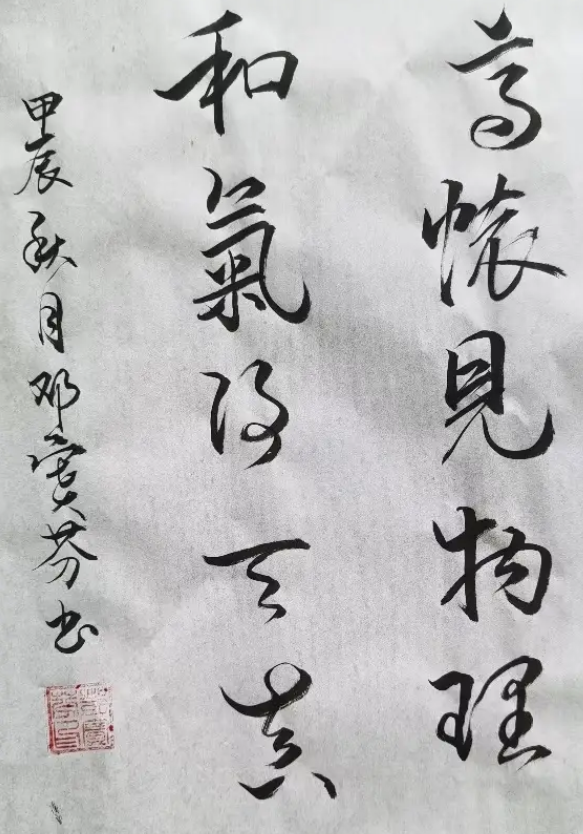 高懷見物理
和氣得天真
甲辰秋月邓芬书